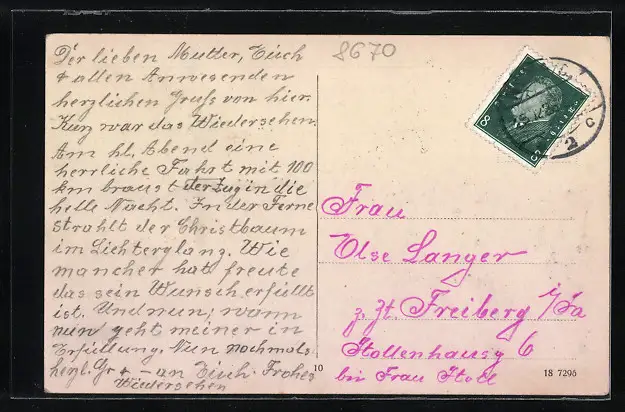 8670
Der lieben Mutter, Euch
+ allen Anwesenden
herzlichen Gruss von hier.
Kurz war das Wiedersehen.
Am hl. Abend eine
herrliche Fahrt mit 100
km braust der Zug in die
helle Nacht. In der Ferne
strahlt der Christbaum
im Lichterglanz. Wie
mancher hat freute
das sein Wunsch erfüllt
ist. Und nun, wann
nun geht meiner in
Erfüllung. Nun nochmals
herzl. Gr + – an Euch. Frohes
Wiedersehen
Frau
Else Langer
z. Zt. Freiberg i/Sa
Hollenhausg 6
bei Frau Stoll
10
18 7295
8
8
2
c